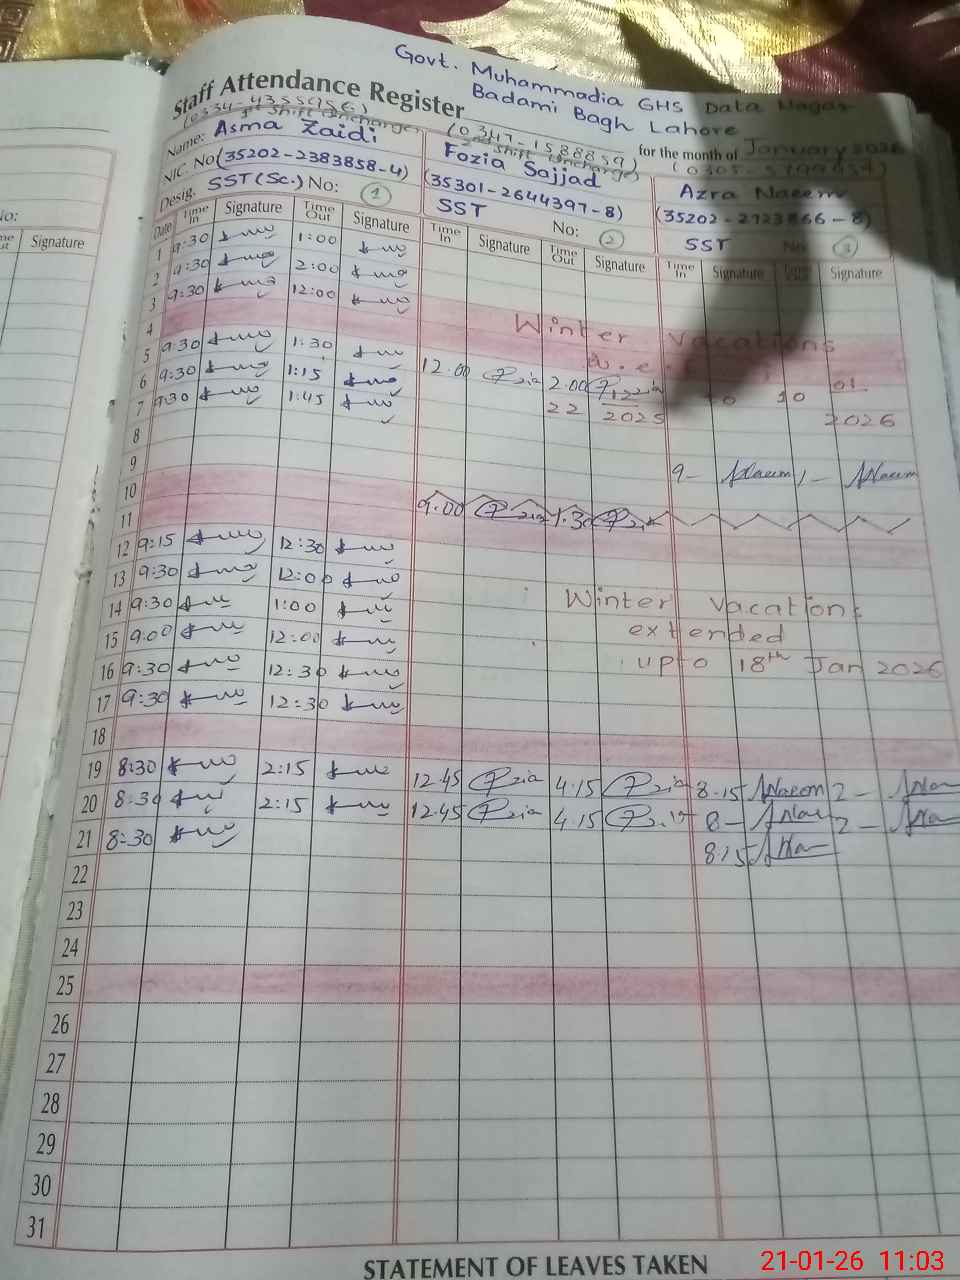 Govt. Muhammadia GHS Data Nagar
Badami Bagh Lahore
Staff Attendance Register
for the month of January 2026
(0334-4355956)
1st Shift Incharge
Name: Asma Zaidi
NIC. No (35202-2383858-4)
Desig. SST (Sc.) No: 1
(0347-1588859)
2nd Shift Incharge
Fozia Sajjad
(35301-2644397-8)
SST No: 2
Azra Naeem
(35202-2723866-8)
SST No 3
No:
Signature
Date Time In Signature Time Out Signature Time In Signature Time Out Signature Time In Signature Signature
1 9:30 1:00
2 9:30 2:00
3 9:30 12:00
4 Winter Vacations
5 9:30 1:30 w.e.f
6 9:30 1:15 12.00 2.00 12 01
7 9:30 1:45 22 2025 to 10 2026
8
9 9- Naeem 1- Naeem
10
11 9.00 1.30
12 9:15 12:30
13 9:30 12:00
14 9:30 1:00 Winter vacations
15 9:00 12:00 extended
16 9:30 12:30 upto 18th Jan 2026
17 9:30 12:30
18
19 8:30 2:15 12.45 4.15 8.15 Naeem 2-
20 8:30 2:15 12.45 4.15 8- 2-
21 8:30 8.15
22
23
24
25
26
27
28
29
30
31
STATEMENT OF LEAVES TAKEN
21-01-26 11:03